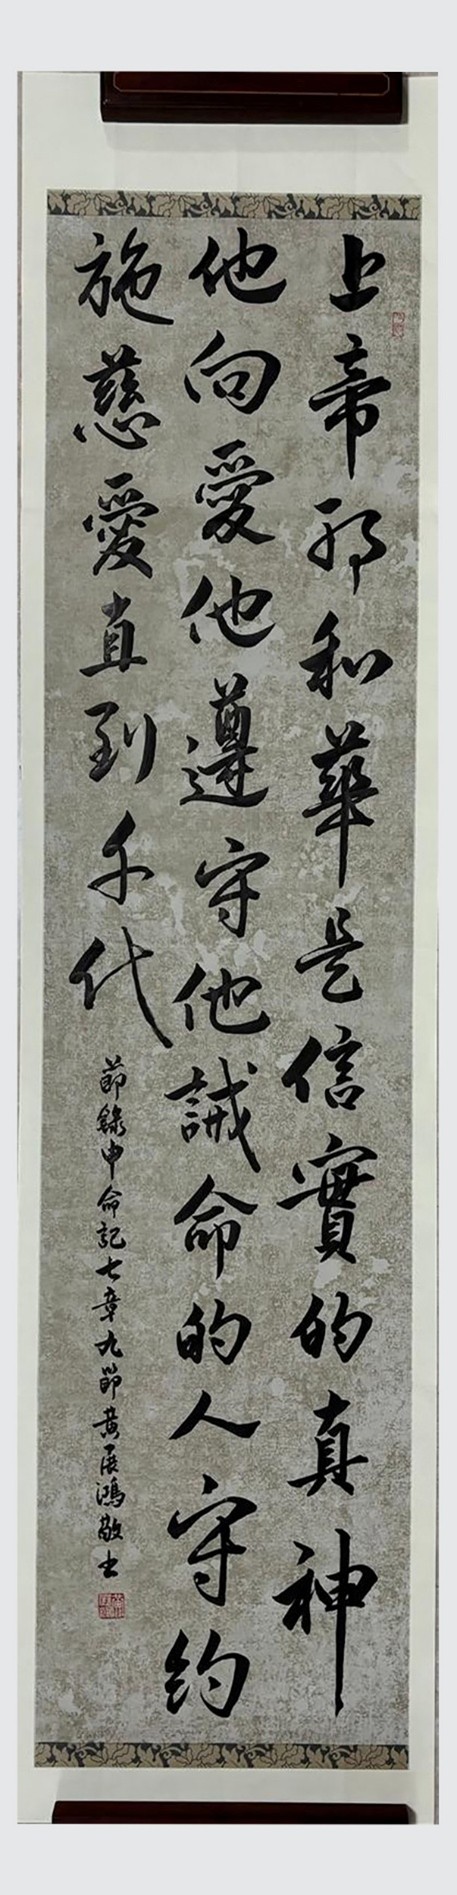 上帝耶和華是信實的真神
他向愛他遵守他誡命的人守约
施慈愛直到千代
節錄申命記七章九節黄展鴻敬书